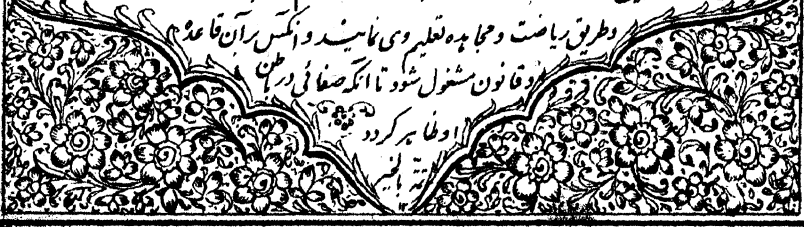 وطریق ریاضت ومجاهده تعلیم وی نمایند و آنکس بر آن قاعده
وقانون مشغول شود تا انکه صفائی در باطن
او ظاهر کردد
تمّه بالخیر